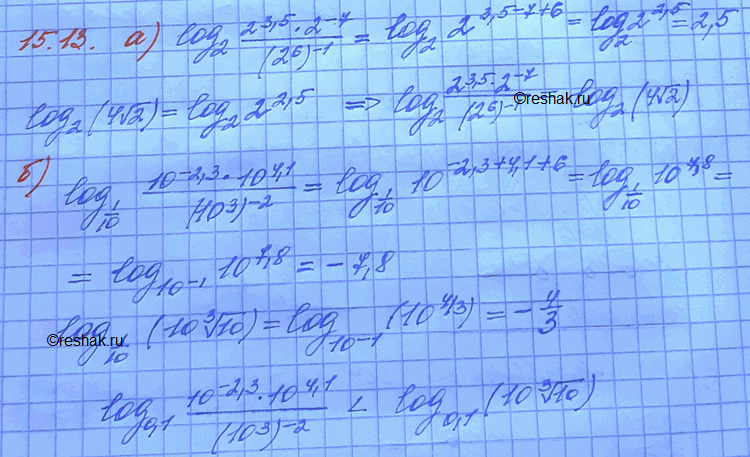 15.13. а) log₂ (2^3,5 · 2^-7)/((2^6)^-1) = log₂ 2^3,5-7+6 = log₂ 2^2,5 = 2,5
log₂(4√2) = log₂ 2^2,5 => log₂ (2^3,5 · 2^-7)/((2^6)^-1) = log₂(4√2)
©reshak.ru
б) log_1/10 (10^-2,3 · 10^4,1)/((10^3)^-2) = log_1/10 10^-2,3+4,1+6 = log_1/10 10^7,8 =
= log_10^-1 10^7,8 = -7,8
log_1/10 (10∛10) = log_10^-1 (10^4/3) = -4/3
©reshak.ru
log_0,1 (10^-2,3 · 10^4,1)/((10^3)^-2) < log_0,1 (10∛10)